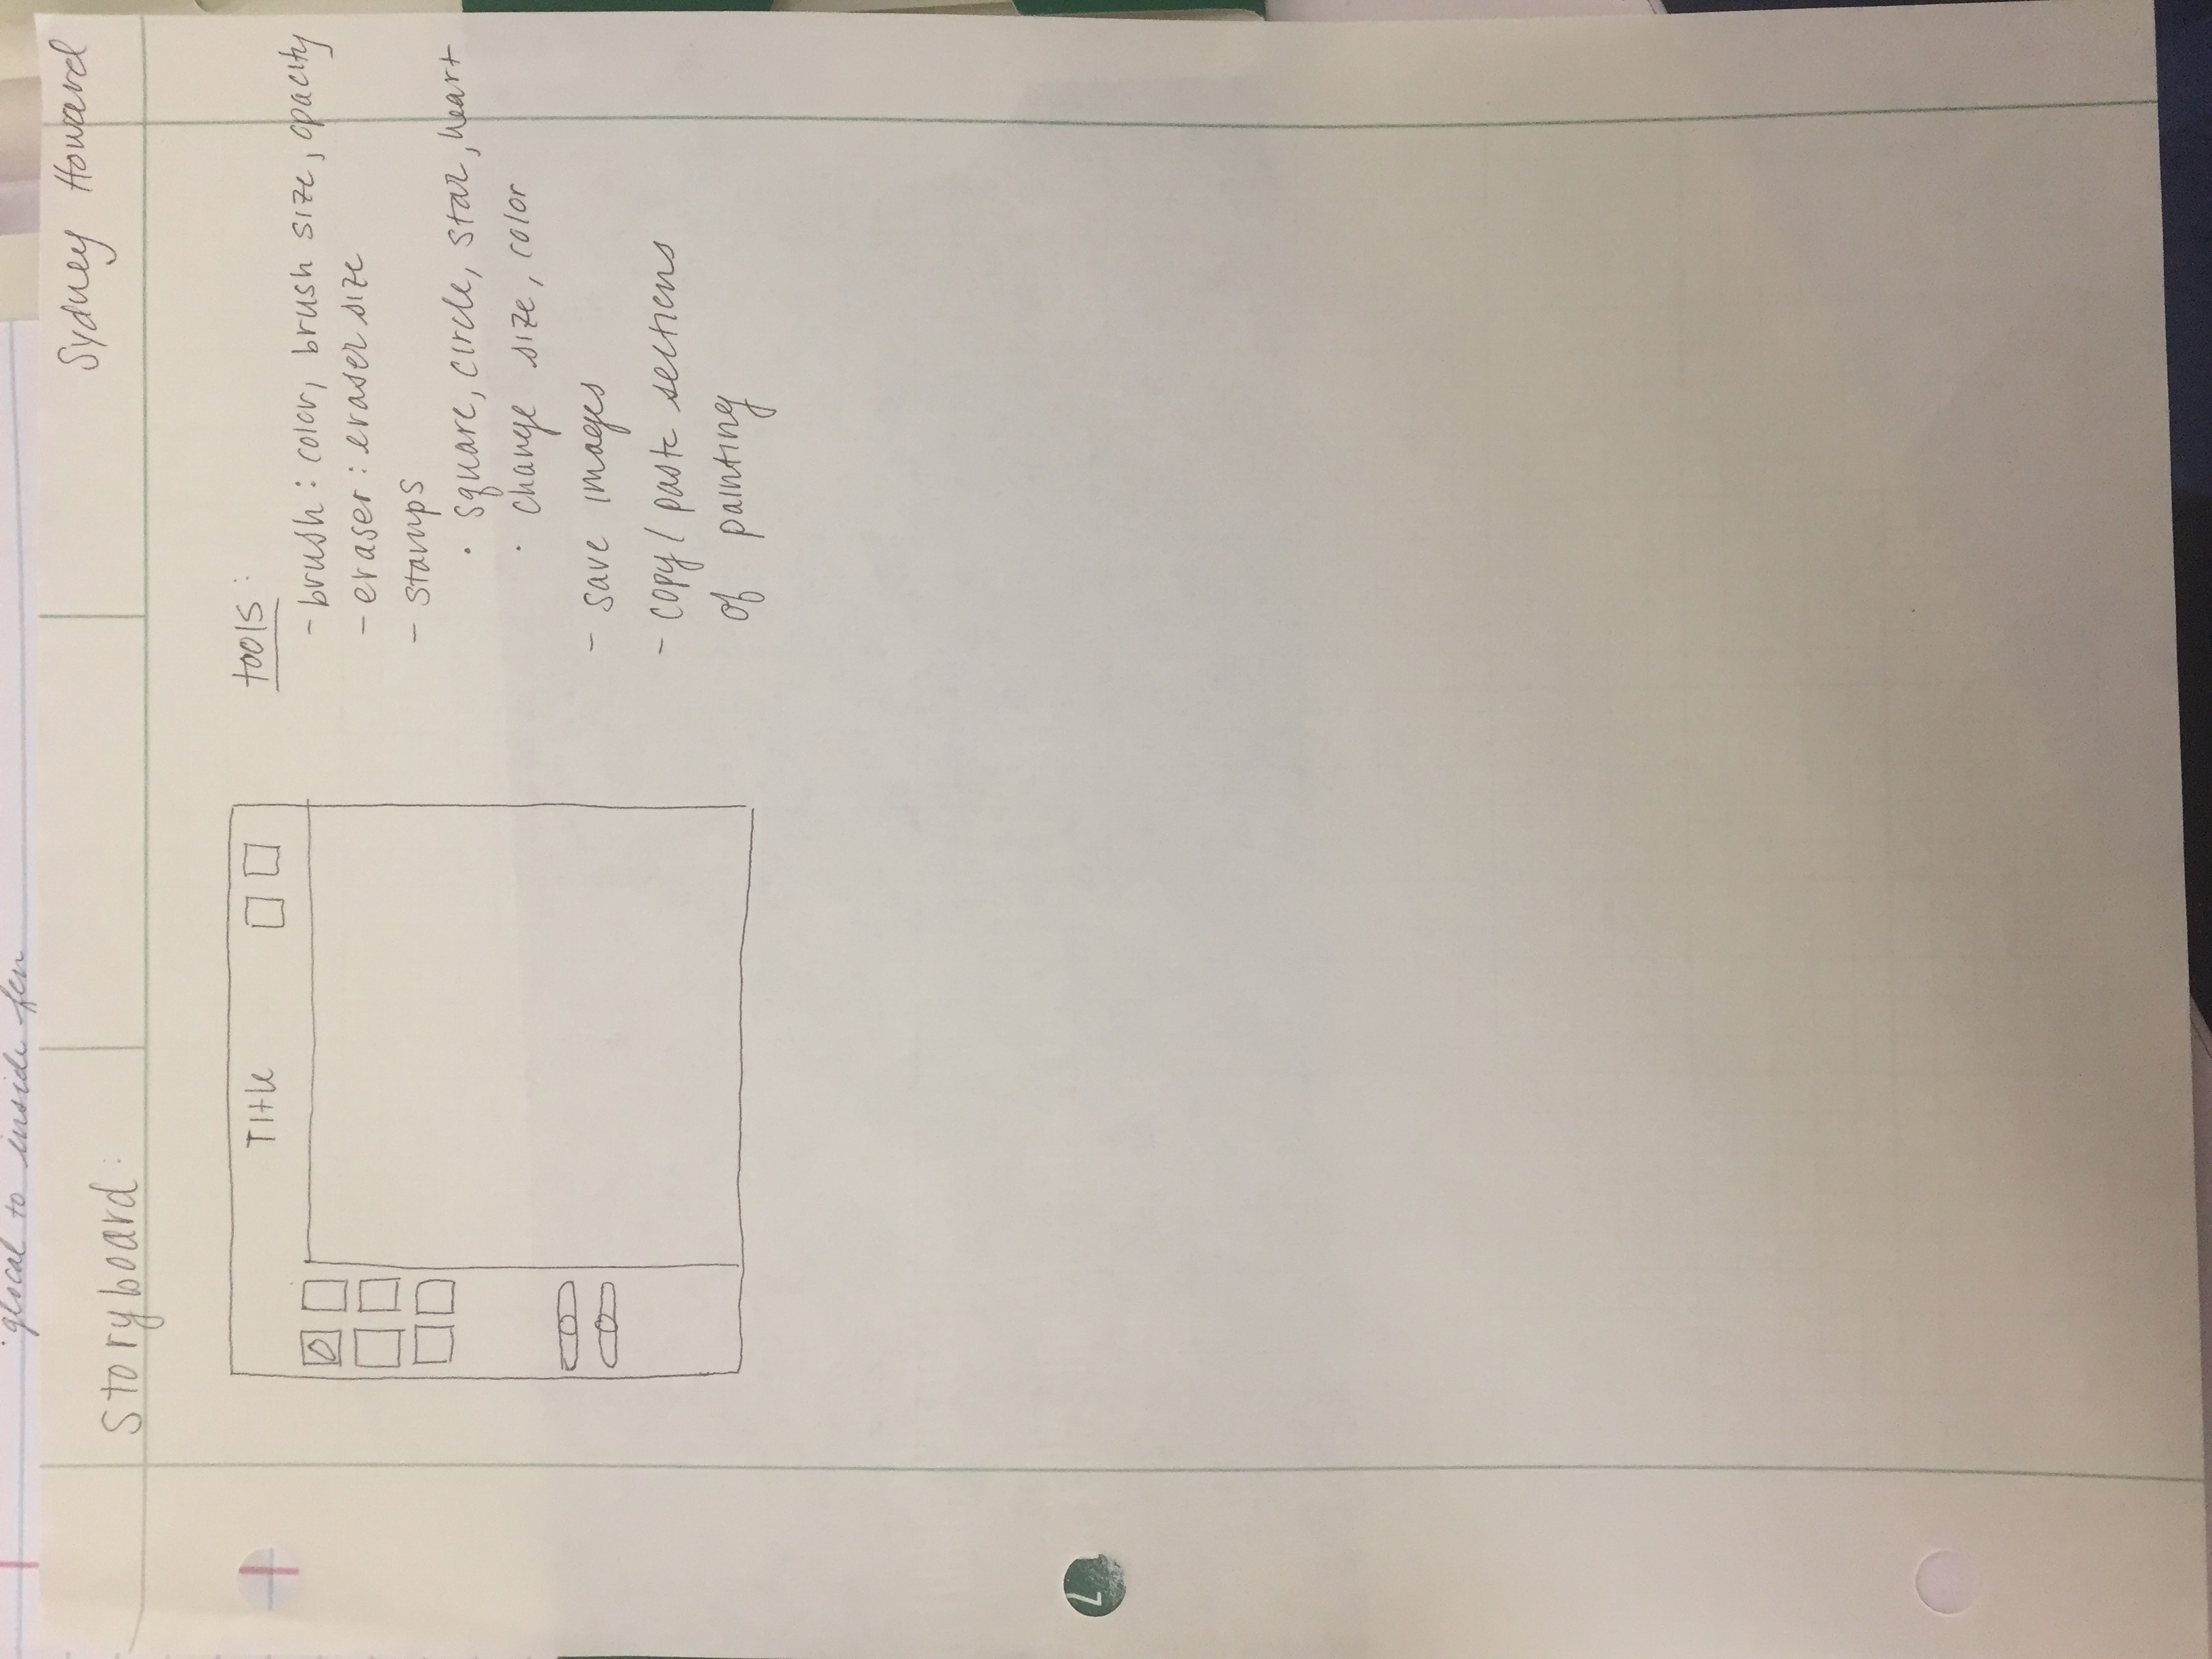 glocal to inside fcn
Sydney Howard
Storyboard:
Title
tools:
- brush: color, brush size, opacity
- eraser: eraser size
- stamps
· square, circle, star, heart
· change size, color
- save images
- copy/paste sections
of painting